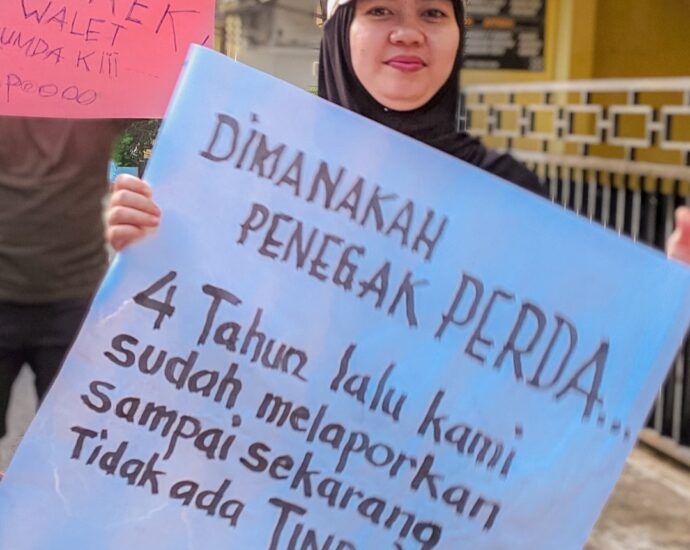 WALET
UMDA KIII
DIMANAKAH
PENEGAK PERDA...
4 Tahun lalu kami
sudah melaporkan
sampai sekarang
Tidak ada